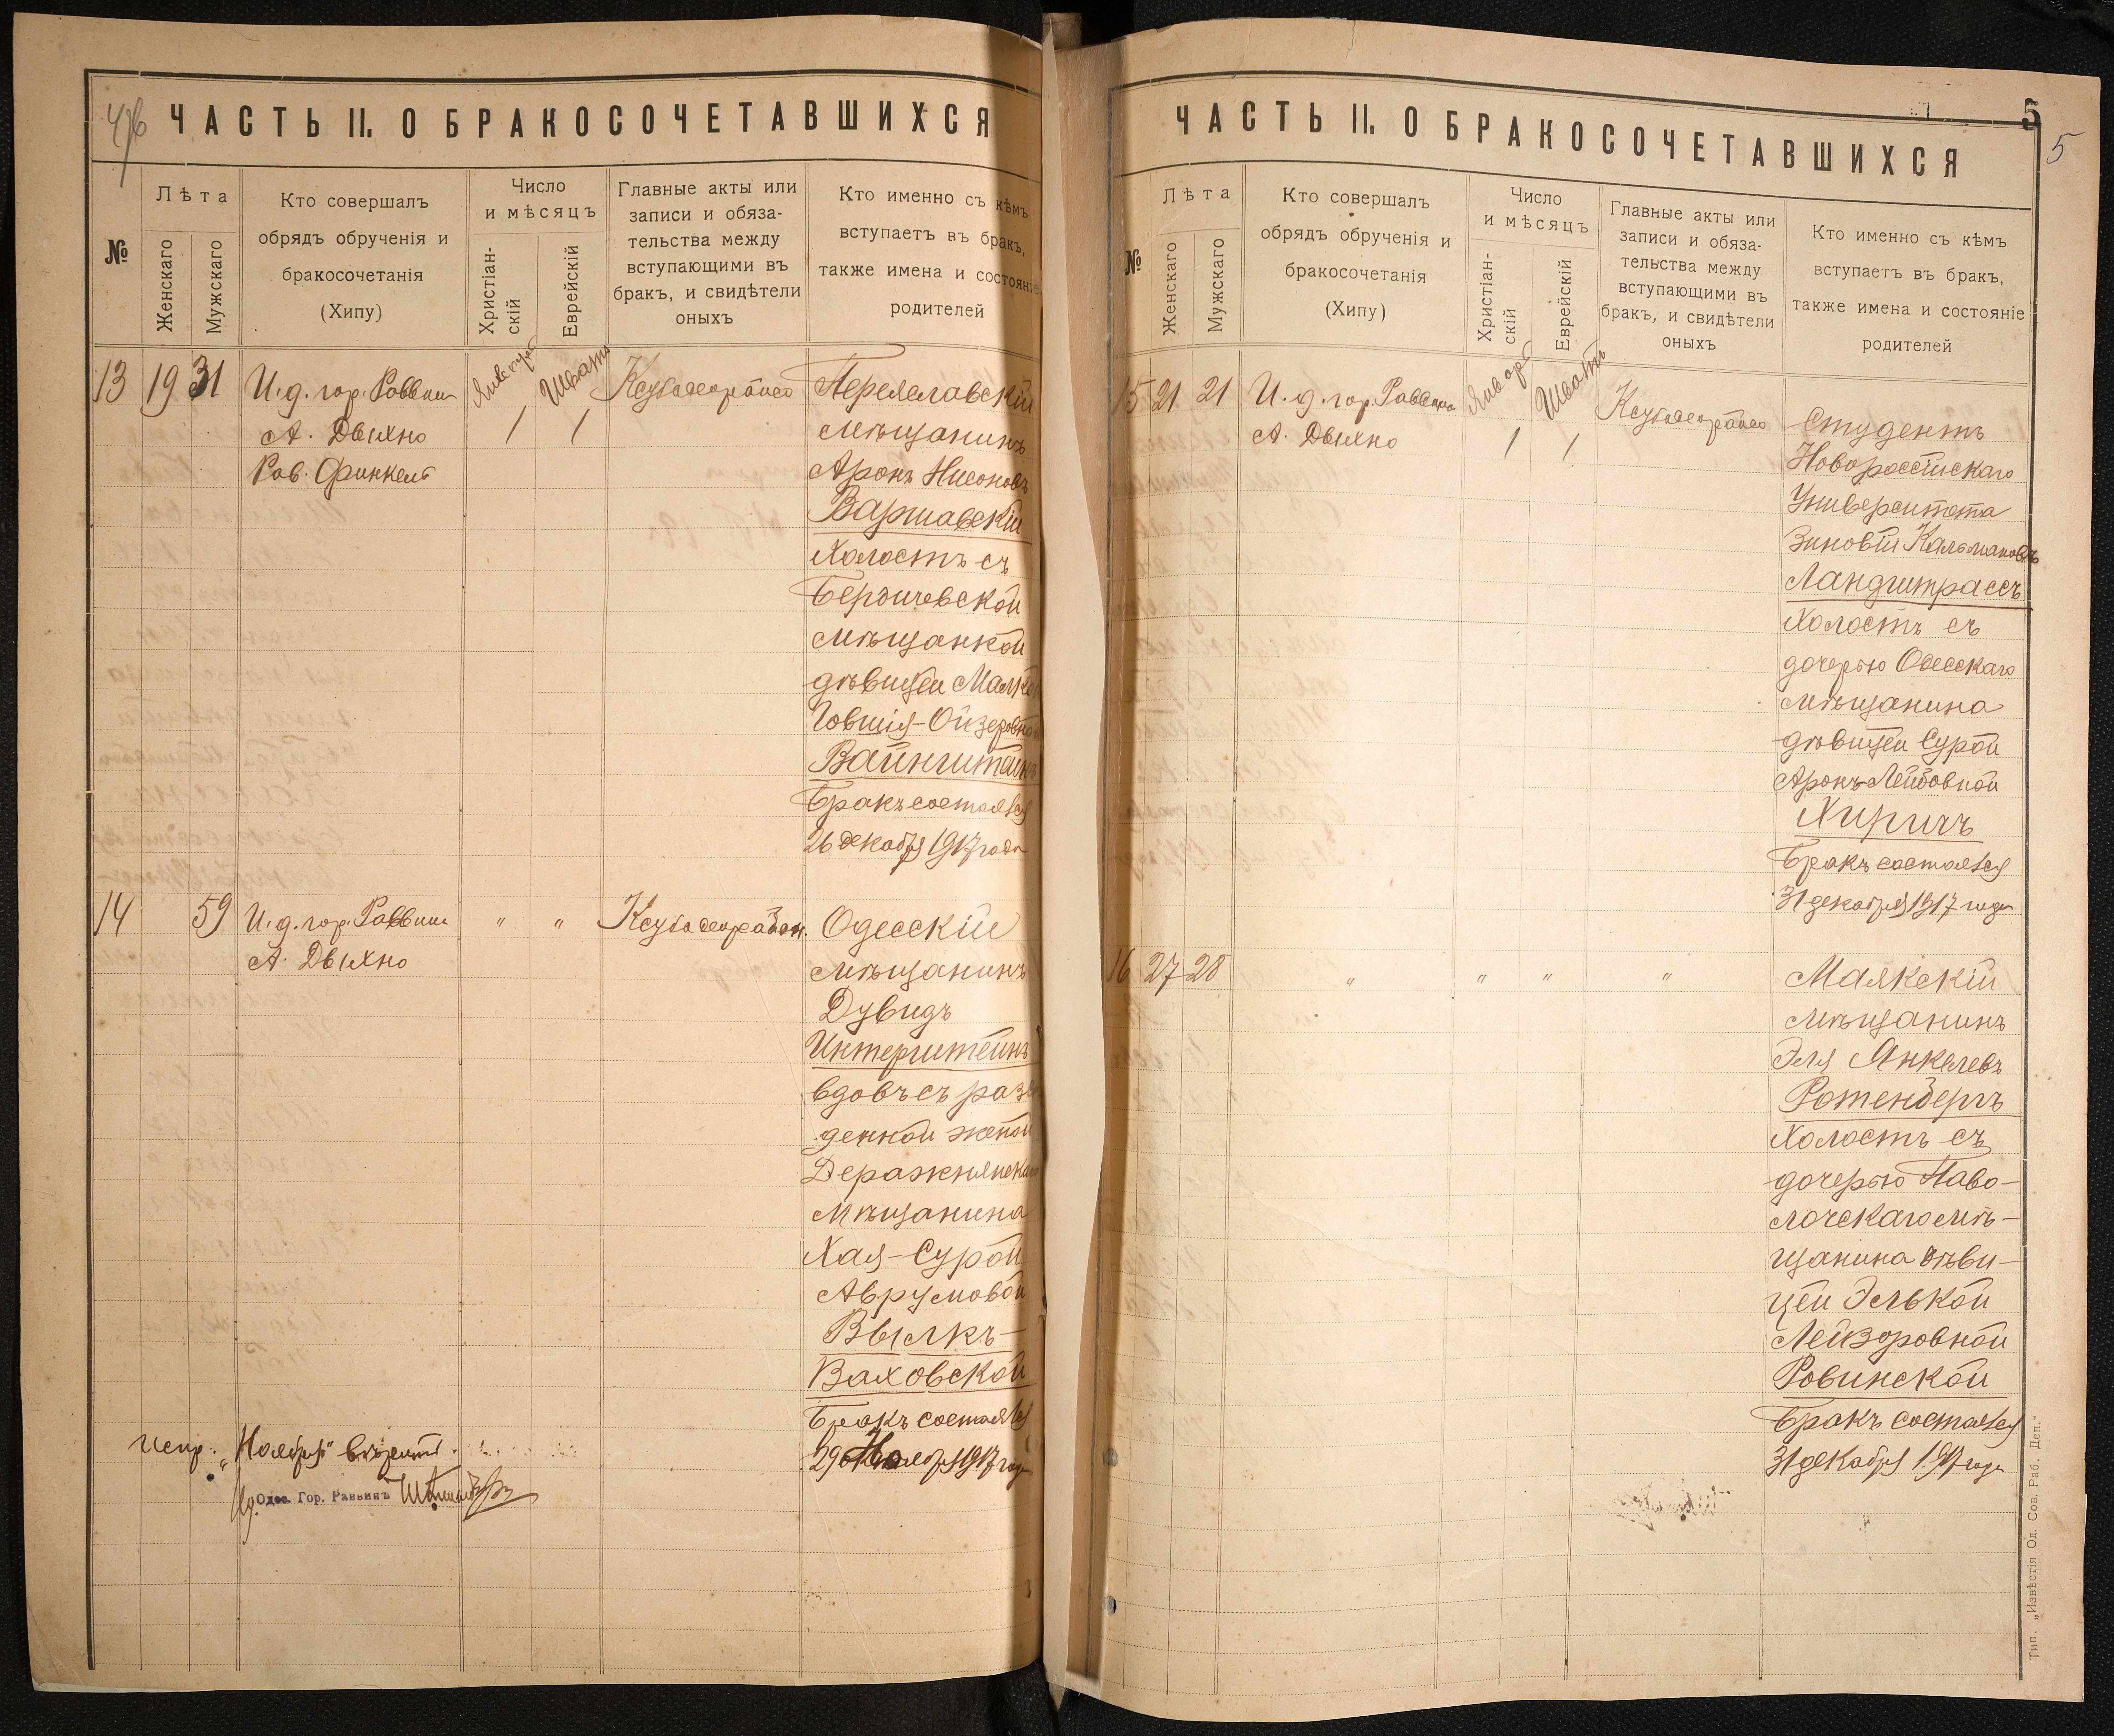 4/6
ЧАСТЬ II. О БРАКОСОЧЕТАВШИХСЯ
№
Лѣта
Женскаго
Мужскаго
Кто совершалъ
обрядъ обрученія и
бракосочетанія
(Хипу)
Число
и мѣсяцъ
Христіан-
скій
Еврейскій
Главные акты или
записи и обяза-
тельства между
вступающими въ
бракъ, и свидѣтели
оныхъ
Кто именно съ кѣмъ
вступаетъ въ бракъ,
также имена и состояніе
родителей
13 19 31
И. д. гор. Раввин
А. Двихно
Рав. Финкель
Январь
1
Шватъ
1
Переяславскій
мѣщанинъ
Аронъ Нисоновъ
Варшавскій
Холостъ съ
Бердичевской
мѣщанкой
дѣвицей Малкой
Говшія-Ойзеровной
Вайнштейнъ
Бракъ состоялся
26 декабря 1917 года
14 59
И. д. гор. Раввин
А. Двихно
" "
Одесскій
мѣщанинъ
Дувидъ
Инкерштейнъ
вдовъ съ разве
денной женой
Деражнянскаго
мѣщанина
Хая-Сурой
Аврумовой
Вылкъ-
Ваховской
Бракъ состоялся
29 Ноября 1917 года
испр. „Ноября" вѣрить.
Ид. Одес. Гор. Раввинъ
ЧАСТЬ II. О БРАКОСОЧЕТАВШИХСЯ
5
5
№
Лѣта
Женскаго
Мужскаго
Кто совершалъ
обрядъ обрученія и
бракосочетанія
(Хипу)
Число
и мѣсяцъ
Христіан-
скій
Еврейскій
Главные акты или
записи и обяза-
тельства между
вступающими въ
бракъ, и свидѣтели
оныхъ
Кто именно съ кѣмъ
вступаетъ въ бракъ,
также имена и состояніе
родителей
15 21 21
И. д. гор. Раввина
А. Двихно
Январь
1
Шватъ
1
Студентъ
Новороссійскаго
Университета
Зиновій Кальмановъ
Ландштрассъ
Холостъ съ
дочерью Одесскаго
мѣщанина
дѣвицей Сурой
Аронъ-Лейбовной
Хиричъ
Бракъ состоялся
31 декабря 1917 года
16 27 28
" " " "
Маякскій
мѣщанинъ
Эля Янкелевъ
Ротенбергъ
Холостъ съ
дочерью Паво-
лочскаго мѣ-
щанина дѣви-
цей Элькой
Лейзоровной
Ровинской
Бракъ состоялся
31 декабря 1917 года
Тип. „Извѣстія Од. Сов. Раб. Деп."